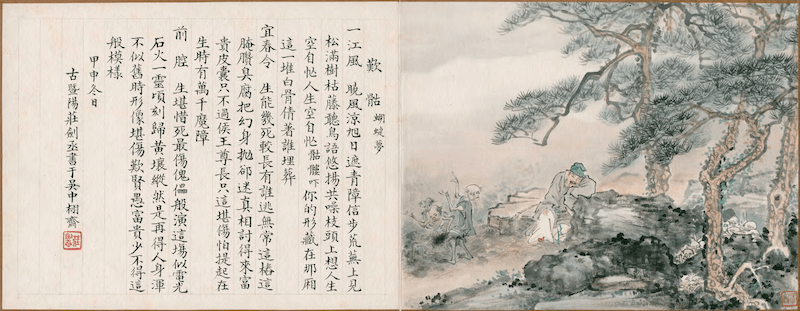 歎骷 蝴蝶夢
一江風 曉風涼旭日遮青障信步荒蕪上見
松滿樹枯藤聽鳥語悠揚共噪枝頭上想人生
空自忙人生空自忙骷髏吓你的形藏在那厢
這一堆白骨倩著誰埋葬
宜春令 生能幾死較長有誰逃無常這樁這
腌臢臭腐把幻身拋郤迷真相討得來富
貴皮囊只不過侯王尊長只這堪傷怕提起在
生時有萬千魔障
前腔 生堪惜死最傷傀儡般演這場似雷光
石火一靈頃刻歸黃壤縱然是再得人身渾
不似舊時形像堪傷歎賢愚富貴少不得這
般模樣
甲申冬日
古暨陽莊劍丞書于吳中栩齋